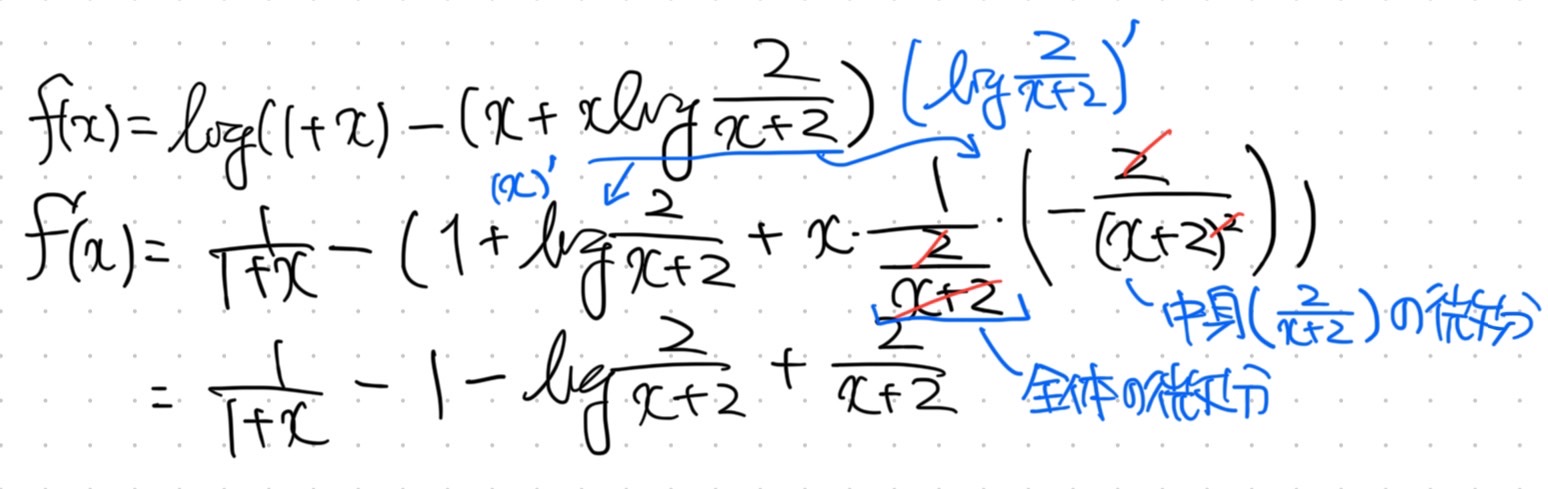 f(x) = log(1+x) − (x + x log 2/(x+2)) (log 2/(x+2))′
(x)′
f′(x) = 1/(1+x) − (1 + log 2/(x+2) + x · 1/(2/(x+2)) · (− 2/(x+2)²))
中身(2/(x+2))の微分
= 1/(1+x) − 1 − log 2/(x+2) + 2/(x+2)
全体の微分